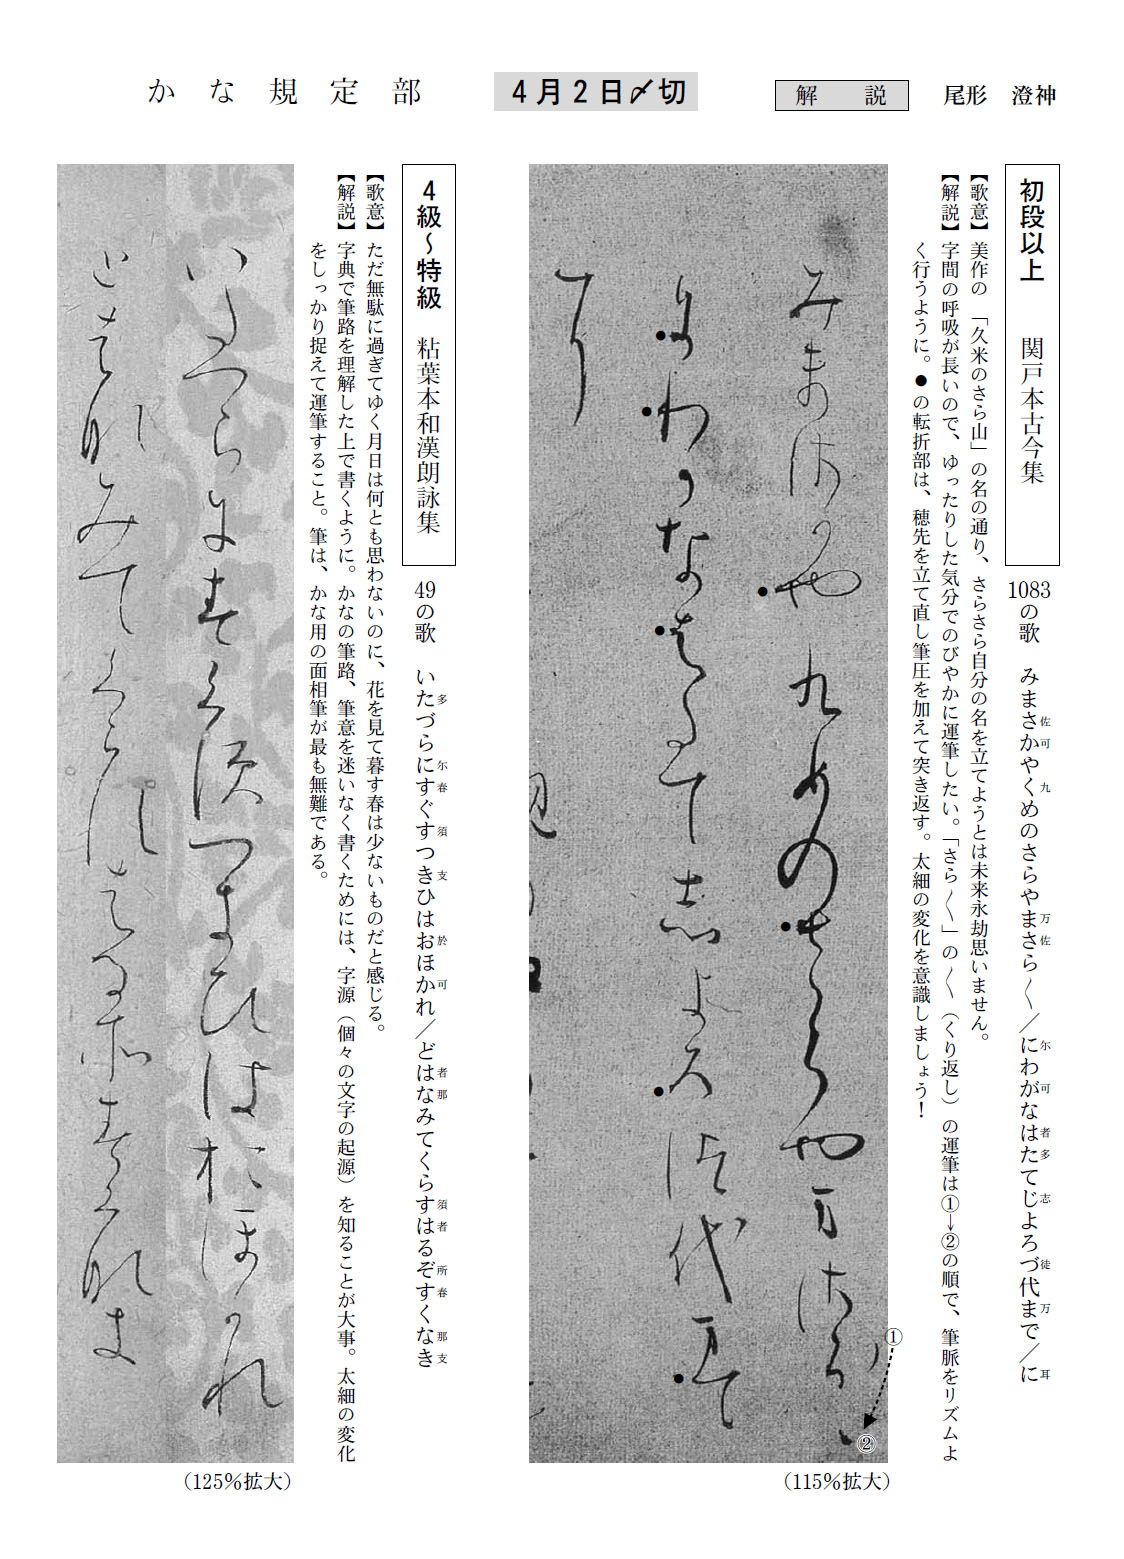 かな規定部
4月2日〆切
解説
尾形 澄神
初段以上 関戸本古今集
1083の歌 みまさかやくめのさらやまさら〳〵／にわがなはたてじよろづ代まで／に
佐可 九 万佐 尓 可 者多 志 徒 万 耳
【歌意】美作の「久米のさら山」の名の通り、さらさら自分の名を立てようとは未来永劫思いません。
【解説】字間の呼吸が長いので、ゆったりした気分でのびやかに運筆したい。「さら〳〵」の〳〵（くり返し）の運筆は①→②の順で、筆脈をリズムよ
く行うように。●の転折部は、穂先を立て直し筆圧を加えて突き返す。太細の変化を意識しましょう！
みまさかや九めのさらやまさら〳〵
にわかなはたてしよろつ代まて
に
①
②
（115%拡大）
4級～特級 粘葉本和漢朗詠集
49の歌 いたづらにすぐすつきひはおほかれ／どはなみてくらすはるぞすくなき
多 尓春 須 支 於 可 者那 須者 所春 那支
【歌意】ただ無駄に過ぎてゆく月日は何とも思わないのに、花を見て暮す春は少ないものだと感じる。
【解説】字典で筆路を理解した上で書くように。かなの筆路、筆意を迷いなく書くためには、字源（個々の文字の起源）を知ることが大事。太細の変化
をしっかり捉えて運筆すること。筆は、かな用の面相筆が最も無難である。
いたつらにすくすつきひはおほかれ
とはなみてくらすはるそすくなき
（125%拡大）